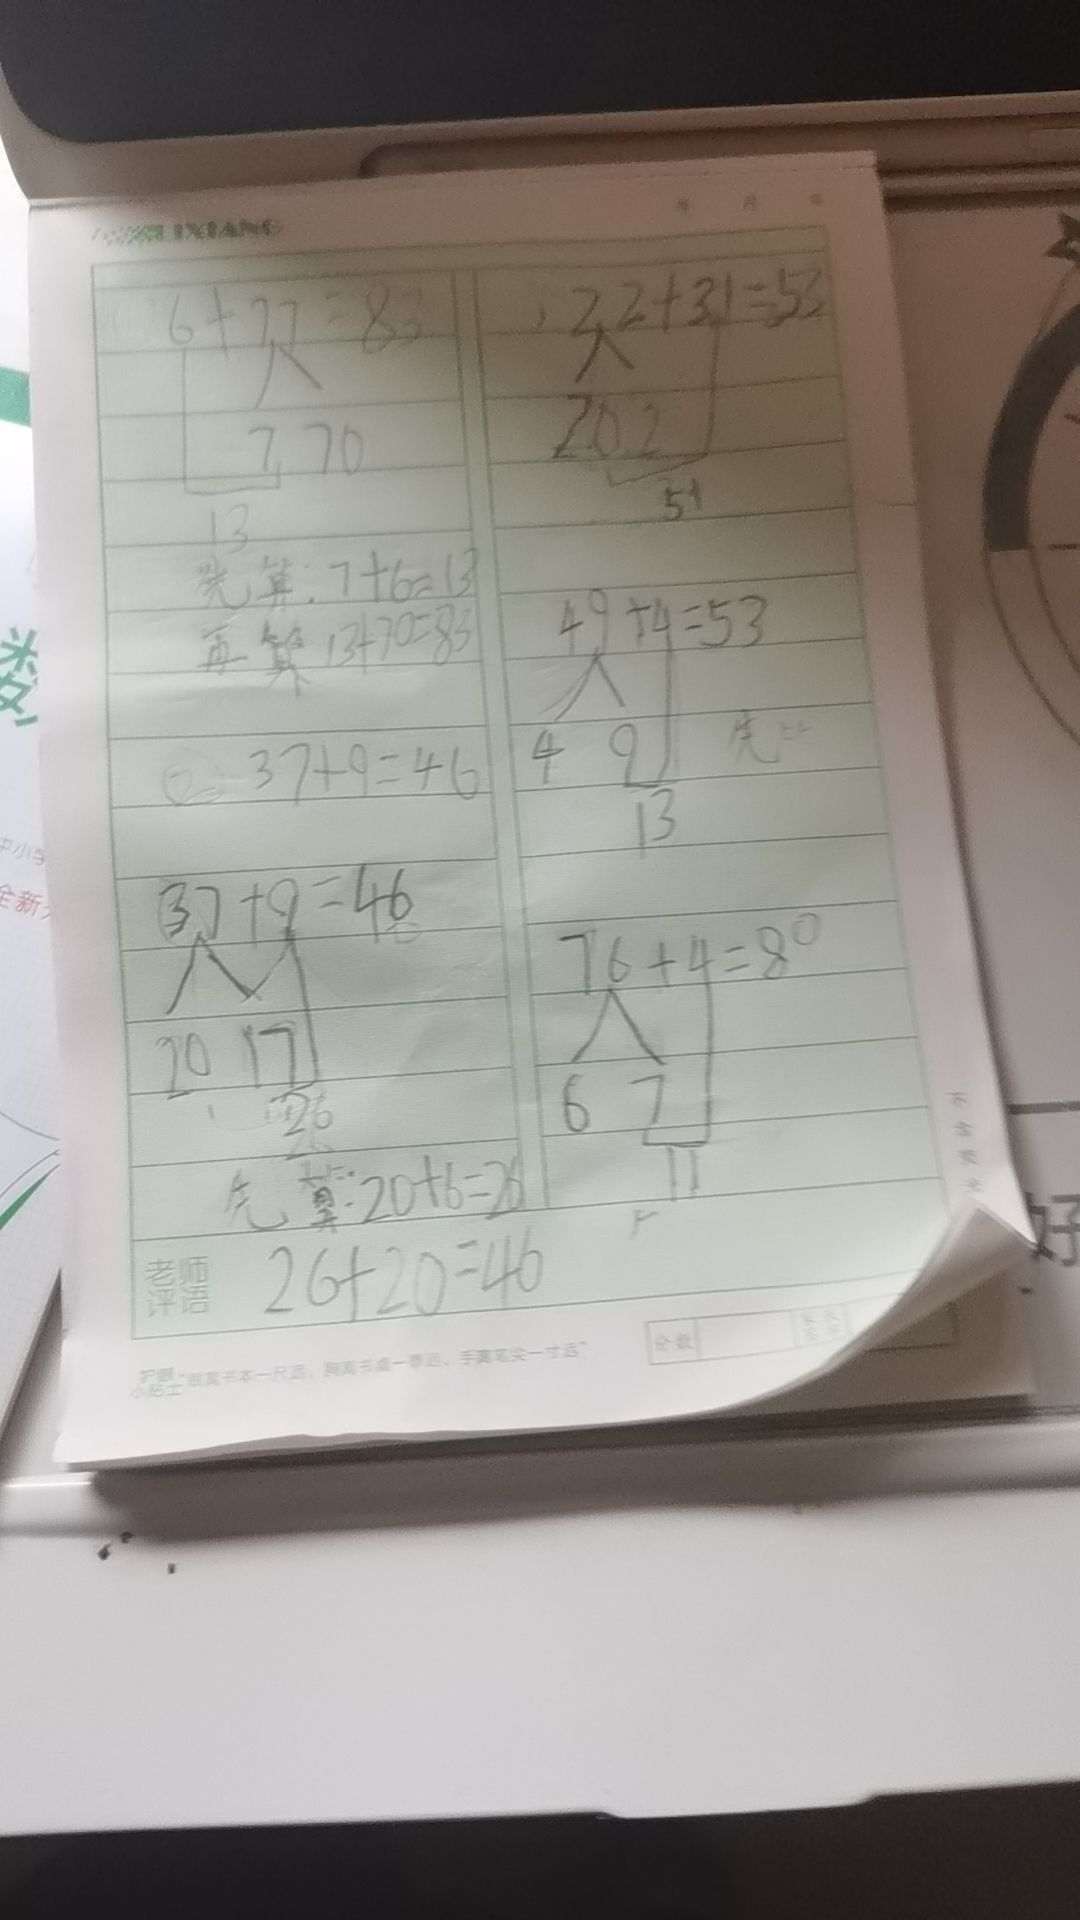 LIXIANG
年 月 日
6+77=83
7 70
13
先算:7+6=13
再算13+70=83
② 37+9=46
37+9=46
20 17
26
先算:20+6=26
26+20=46
22+31=53
20 2
51
49+4=53
4 9
先
13
76+4=80
6 7
11
老师
评语
分数
护眼
小贴士
"眼离书本一尺远,胸离书桌一拳远,手离笔尖一寸远"
数
中小学
全新
好